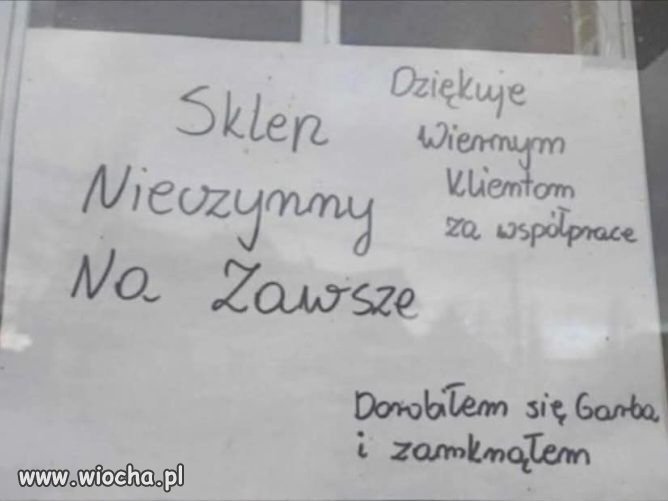 Sklep
Nieczynny
Na Zawsze
Dziękuje
Wiernym
Klientom
za współprace
Dorobiłem się Garba
i zamknąłem
www.wiocha.pl